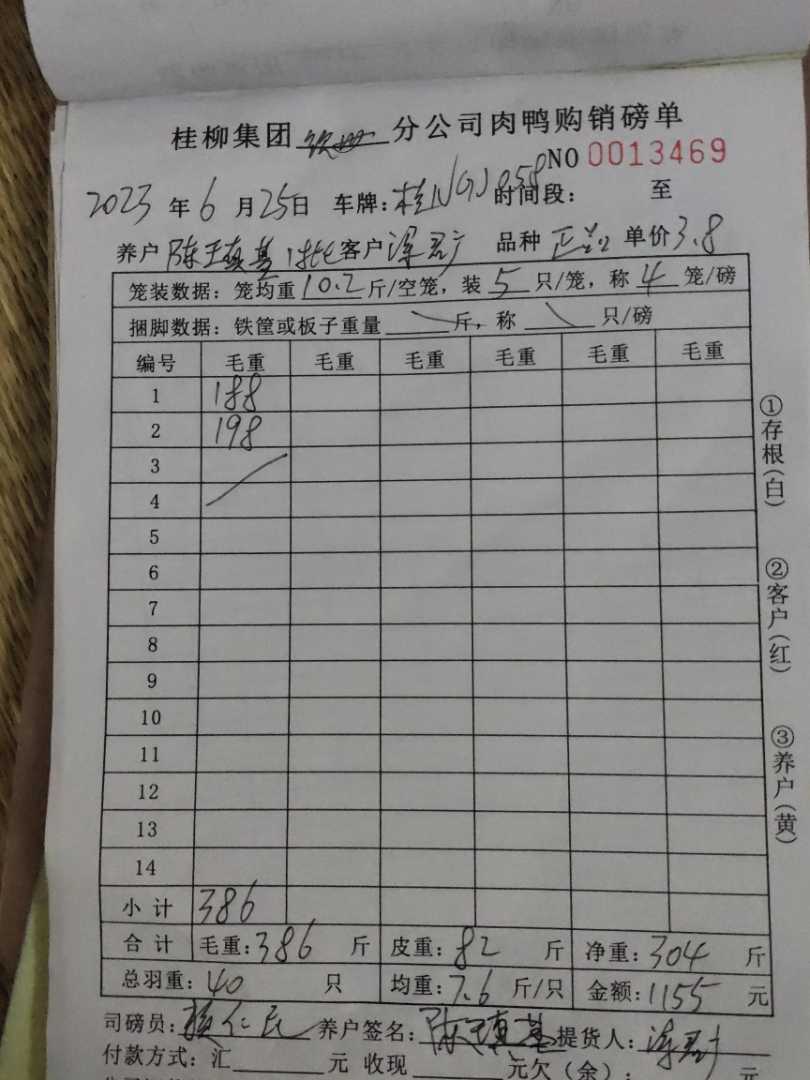 桂柳集团 分公司肉鸭购销磅单
NO 0013469
2023 年 6 月 25 日 车牌: 桂NGJ058 时间段: 至
养户 陈王真基 1批 客户 品种 正品 单价 3.8
笼装数据: 笼均重 10.2 斤/空笼, 装 5 只/笼, 称 4 笼/磅
捆脚数据: 铁筐或板子重量 斤, 称 只/磅
编号 毛重 毛重 毛重 毛重 毛重 毛重
1 188
2 198
3
4
5
6
7
8
9
10
11
12
13
14
小计 386
合计 毛重: 386 斤 皮重: 82 斤 净重: 304 斤
总羽重: 40 只 均重: 7.6 斤/只 金额: 1155 元
司磅员: 养户签名: 提货人:
付款方式: 汇 元 收现 元欠(余): 元
①存根(白)
②客户(红)
③养户(黄)